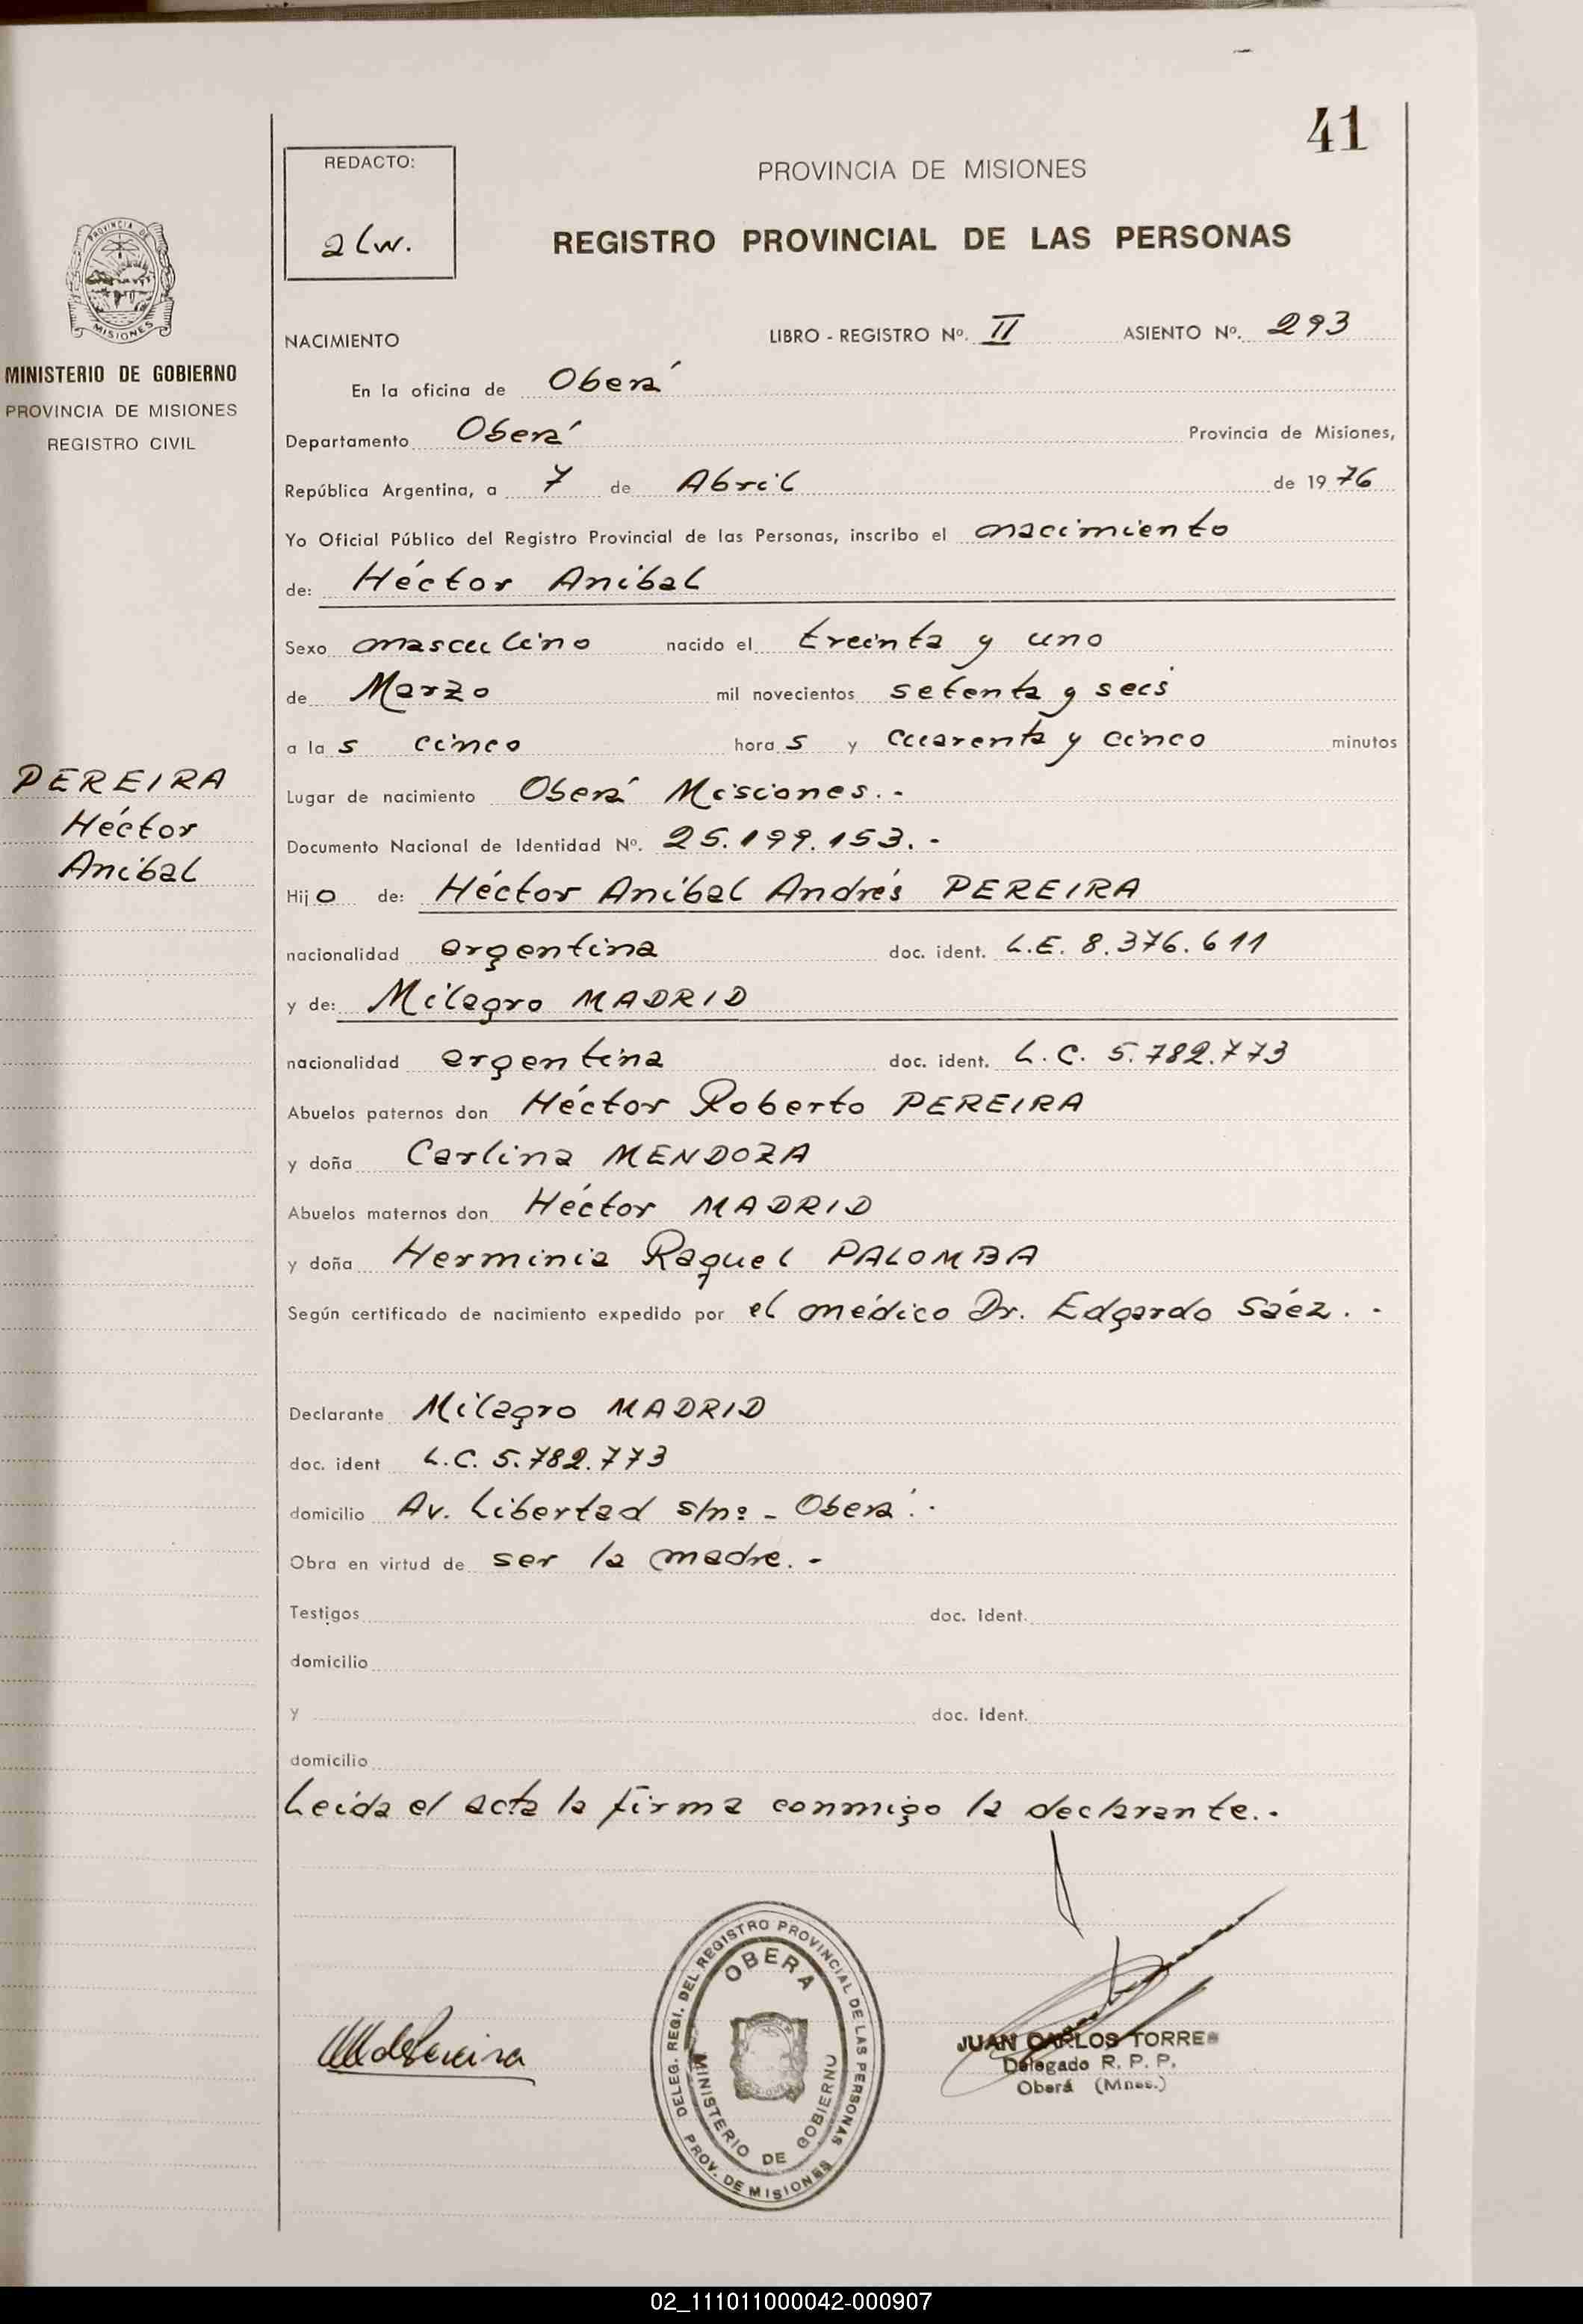 41
REDACTO:
alw.
PROVINCIA DE MISIONES
REGISTRO PROVINCIAL DE LAS PERSONAS
PROVINCIA DE MISIONES
MINISTERIO DE GOBIERNO
PROVINCIA DE MISIONES
REGISTRO CIVIL
NACIMIENTO LIBRO - REGISTRO Nº. II ASIENTO Nº. 293
En la oficina de Oberá
Departamento Oberá Provincia de Misiones,
República Argentina, a 7 de Abril de 1976
Yo Oficial Público del Registro Provincial de las Personas, inscribo el nacimiento
de: Héctor Anibal
Sexo masculino nacido el treinta y uno
de Marzo mil novecientos setenta y seis
a las cinco horas y cuarenta y cinco minutos
Lugar de nacimiento Oberá Misiones.-
Documento Nacional de Identidad Nº. 25.199.153.-
PEREIRA
Héctor
Anibal
Hijo de: Héctor Aníbal Andrés PEREIRA
nacionalidad argentina doc. ident. L.E. 8.376.611
y de: Milagro MADRID
nacionalidad argentina doc. ident. L.C. 5.782.773
Abuelos paternos don Héctor Roberto PEREIRA
y doña Carlina MENDOZA
Abuelos maternos don Héctor MADRID
y doña Herminia Raquel PALOMBA
Según certificado de nacimiento expedido por el médico Dr. Edgardo Sáez.-
Declarante Milagro MADRID
doc. ident L.C. 5.782.773
domicilio Av. Libertad s/nº - Oberá.-
Obra en virtud de ser la madre.-
Testigos doc. Ident.
domicilio
y doc. Ident.
domicilio
Leída el acta la firma conmigo la declarante.-
DELEG. REGI. DEL REGISTRO PROVINCIAL DE LAS PERSONAS
OBERA
MINISTERIO DE GOBIERNO
PROV. DE MISIONES
JUAN CARLOS TORRES
Delegado R. P. P.
Oberá (Mnes.)
02_111011000042-000907